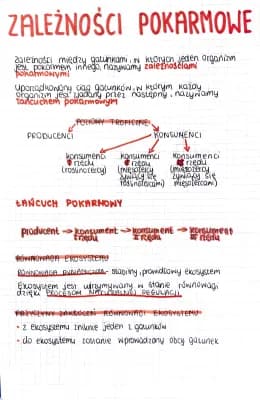 ZALEŻNOŚCI POKARMOWE
zależności między gatunkami, w których jeden organizm
jest pokarmem innego, nazywamy zależnościami
pokarmowymi
Uporządkowany ciąg gatunków, w którym każdy
organizm jest zjadany przez następny, nazywamy
łańcuchem pokarmowym
POZIOMY TROFICZNE
PRODUCENCI KONSUMENCI
konsumenci konsumenci konsumenci
I rzędu II rzędu III rzędu
(roślinożercy) (mięsożercy (mięsożercy
żywiący się żywiący się
roślinożercami) mięsożercami)
ŁAŃCUCH POKARMOWY
producent → konsument → konsument → konsument
I rzędu II rzędu III rzędu
RÓWNOWAGA EKOSYSTEMU
RÓWNOWAGA - stabilny, prawidłowy ekosystem
Ekosystem jest utrzymywany w stanie równowagi
dzięki PROCESOM NATURALNEJ REGULACJI
PRZYCZYNY ZAKŁÓCEŃ RÓWNOWAGI EKOSYSTEMU
- z ekosystemu zniknie jeden z gatunków
- do ekosystemu zostanie wprowadzony obcy gatunek